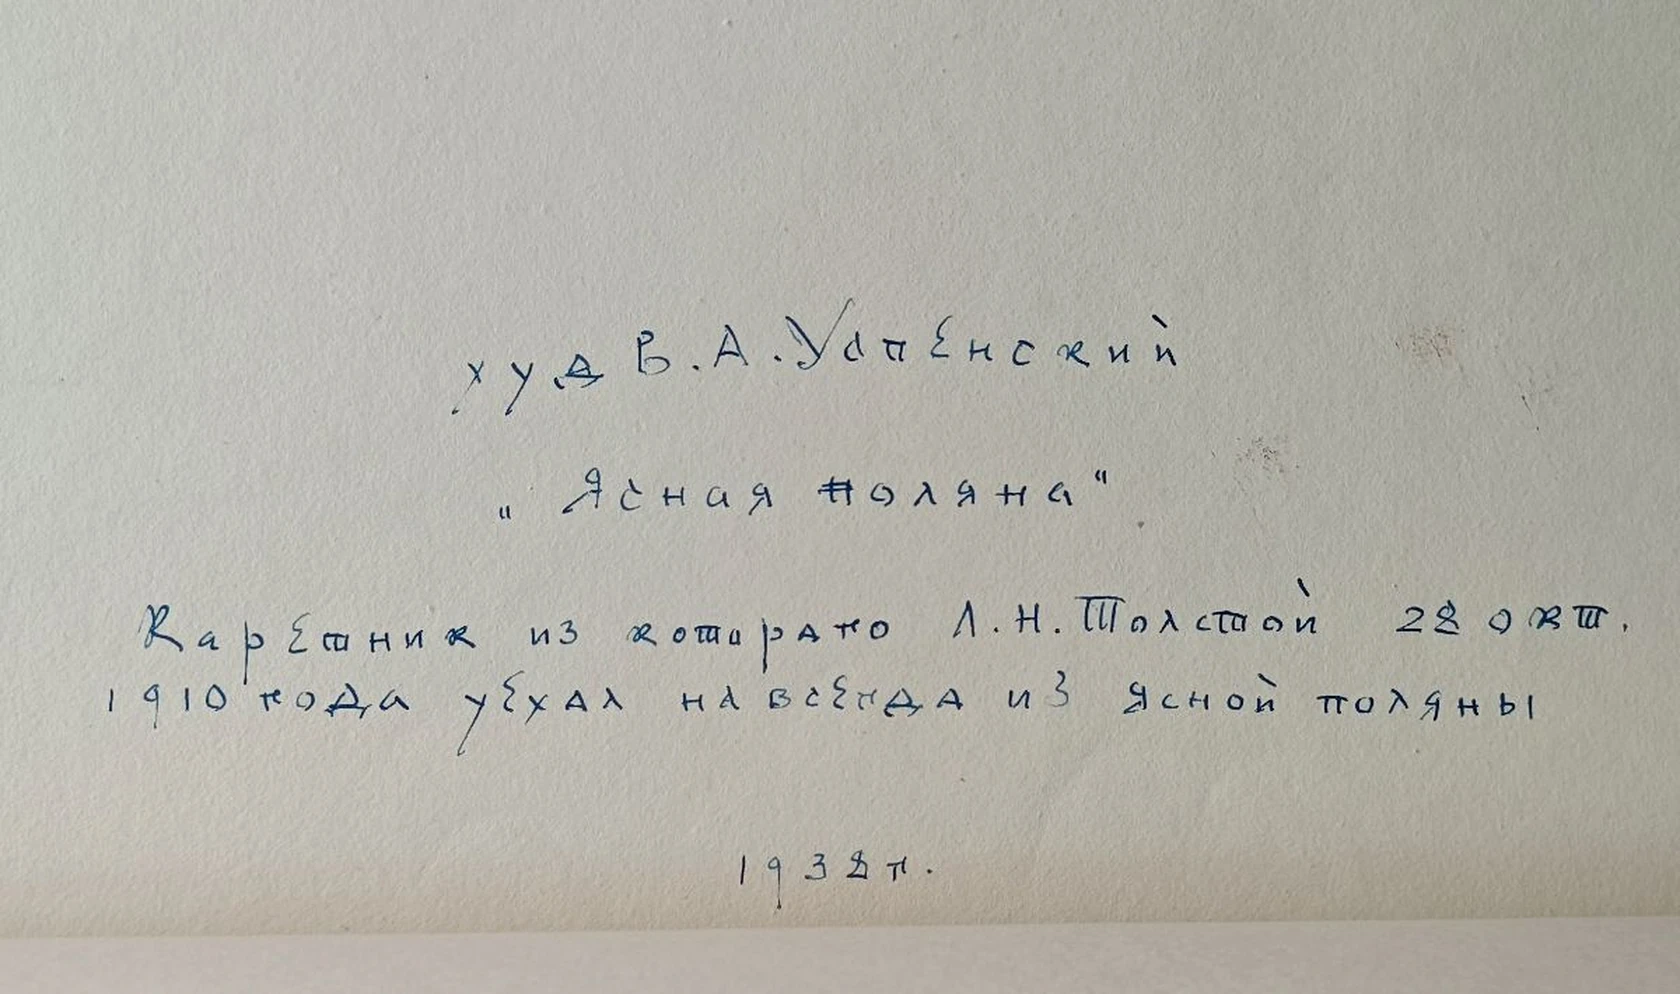 худ В.А.Успенский
„Ясная поляна“
Каретник из которго Л.Н.Толстой 28 окт.
1910 года уехал навсегда из ясной поляны
1938 г.